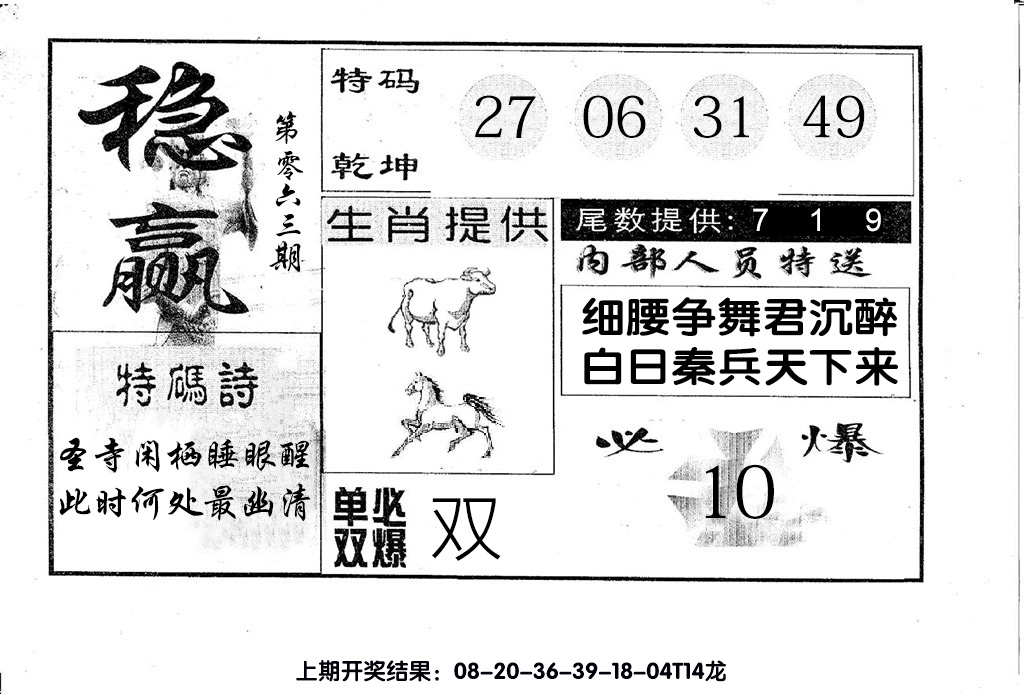 稳赢
第零六三期
特码诗
圣寺闲栖睡眼醒
此时何处最幽清
特码
乾坤
27 06 31 49
生肖提供
单双必爆 双
尾数提供: 7 1 9
内部人员特送
细腰争舞君沉醉
白日秦兵天下来
必 爆
10
上期开奖结果：08-20-36-39-18-04T14龙